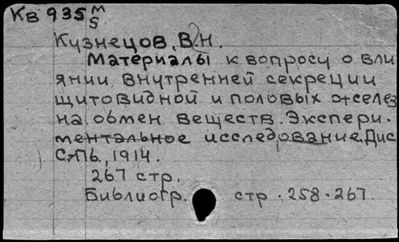 Кв 935 М/5
Кузнецов, В.Н.
Материалы к вопросу о вли
янии внутренней секреции
щитовидной и половых желез
на обмен веществ. Экспери-
ментальное исследование. Дис
С.-Пб., 1914.
267 стр.
Библиогр. стр. 258-267.